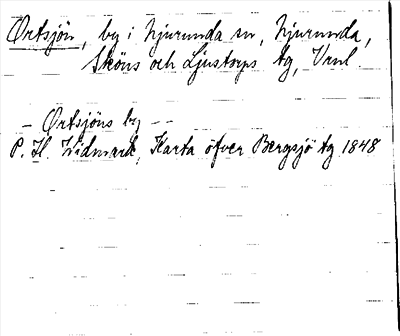 Örtsjön, by i Njurunda sn, Njurunda,
Sköns och Ljustorps tg, Vrnl.
– Örtsjöns by – –
P. H. Widmark, Karta öfver Bergsjö tg 1848